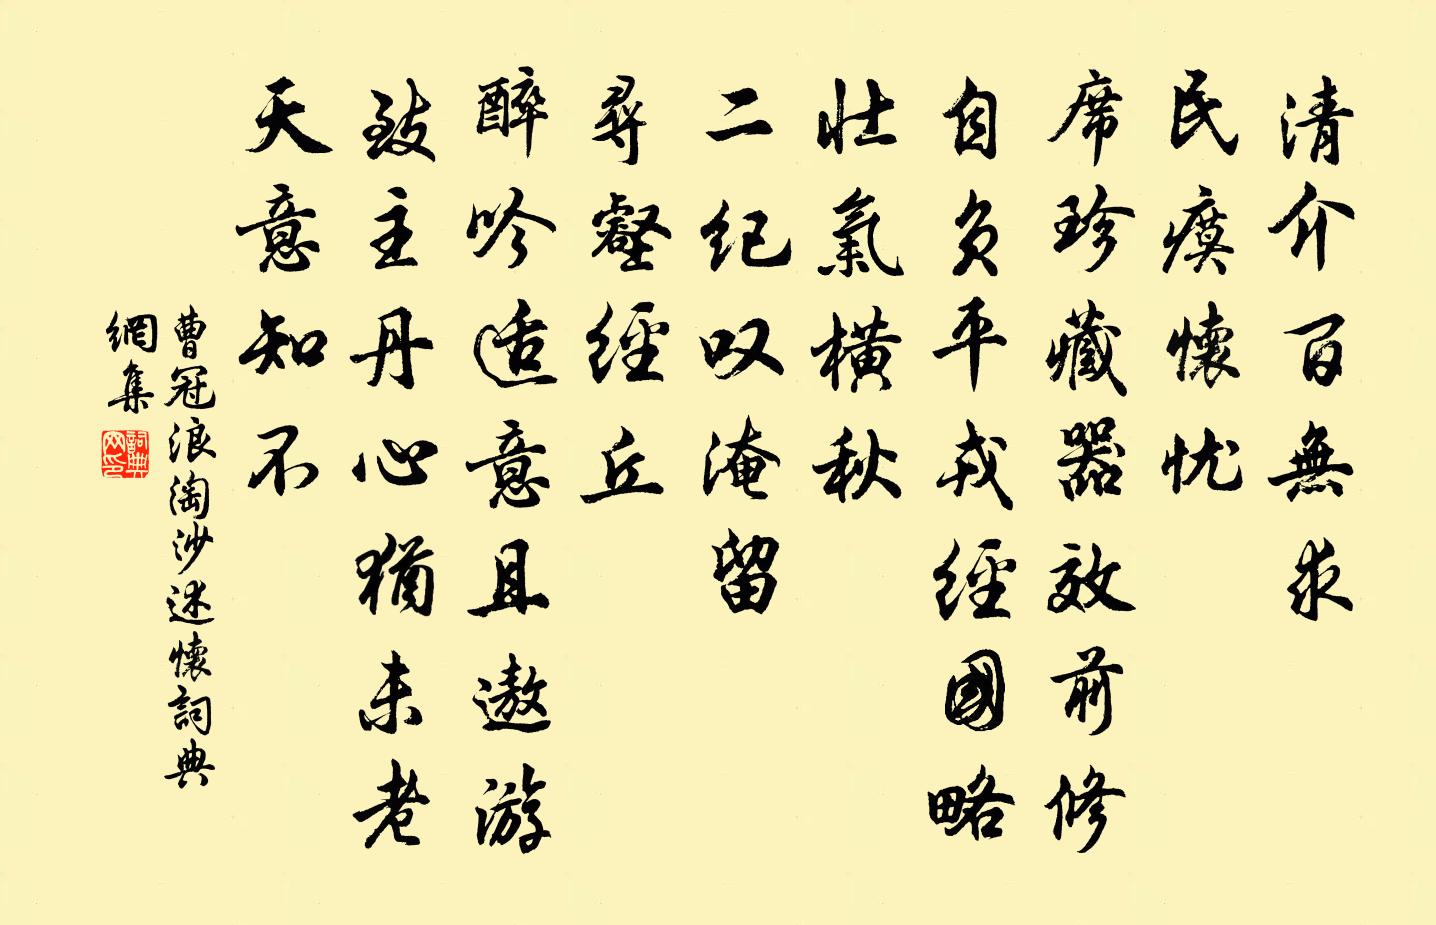 清介百無求
民瘼懷忧
席珍藏器效前修
自負平戎經國略
壮氣橫秋
二纪叹淹留
尋壑經丘
醉吟适意且遨游
致主丹心猶未老
天意知不
曹冠浪淘沙述懷詞典
網集
詞典网印